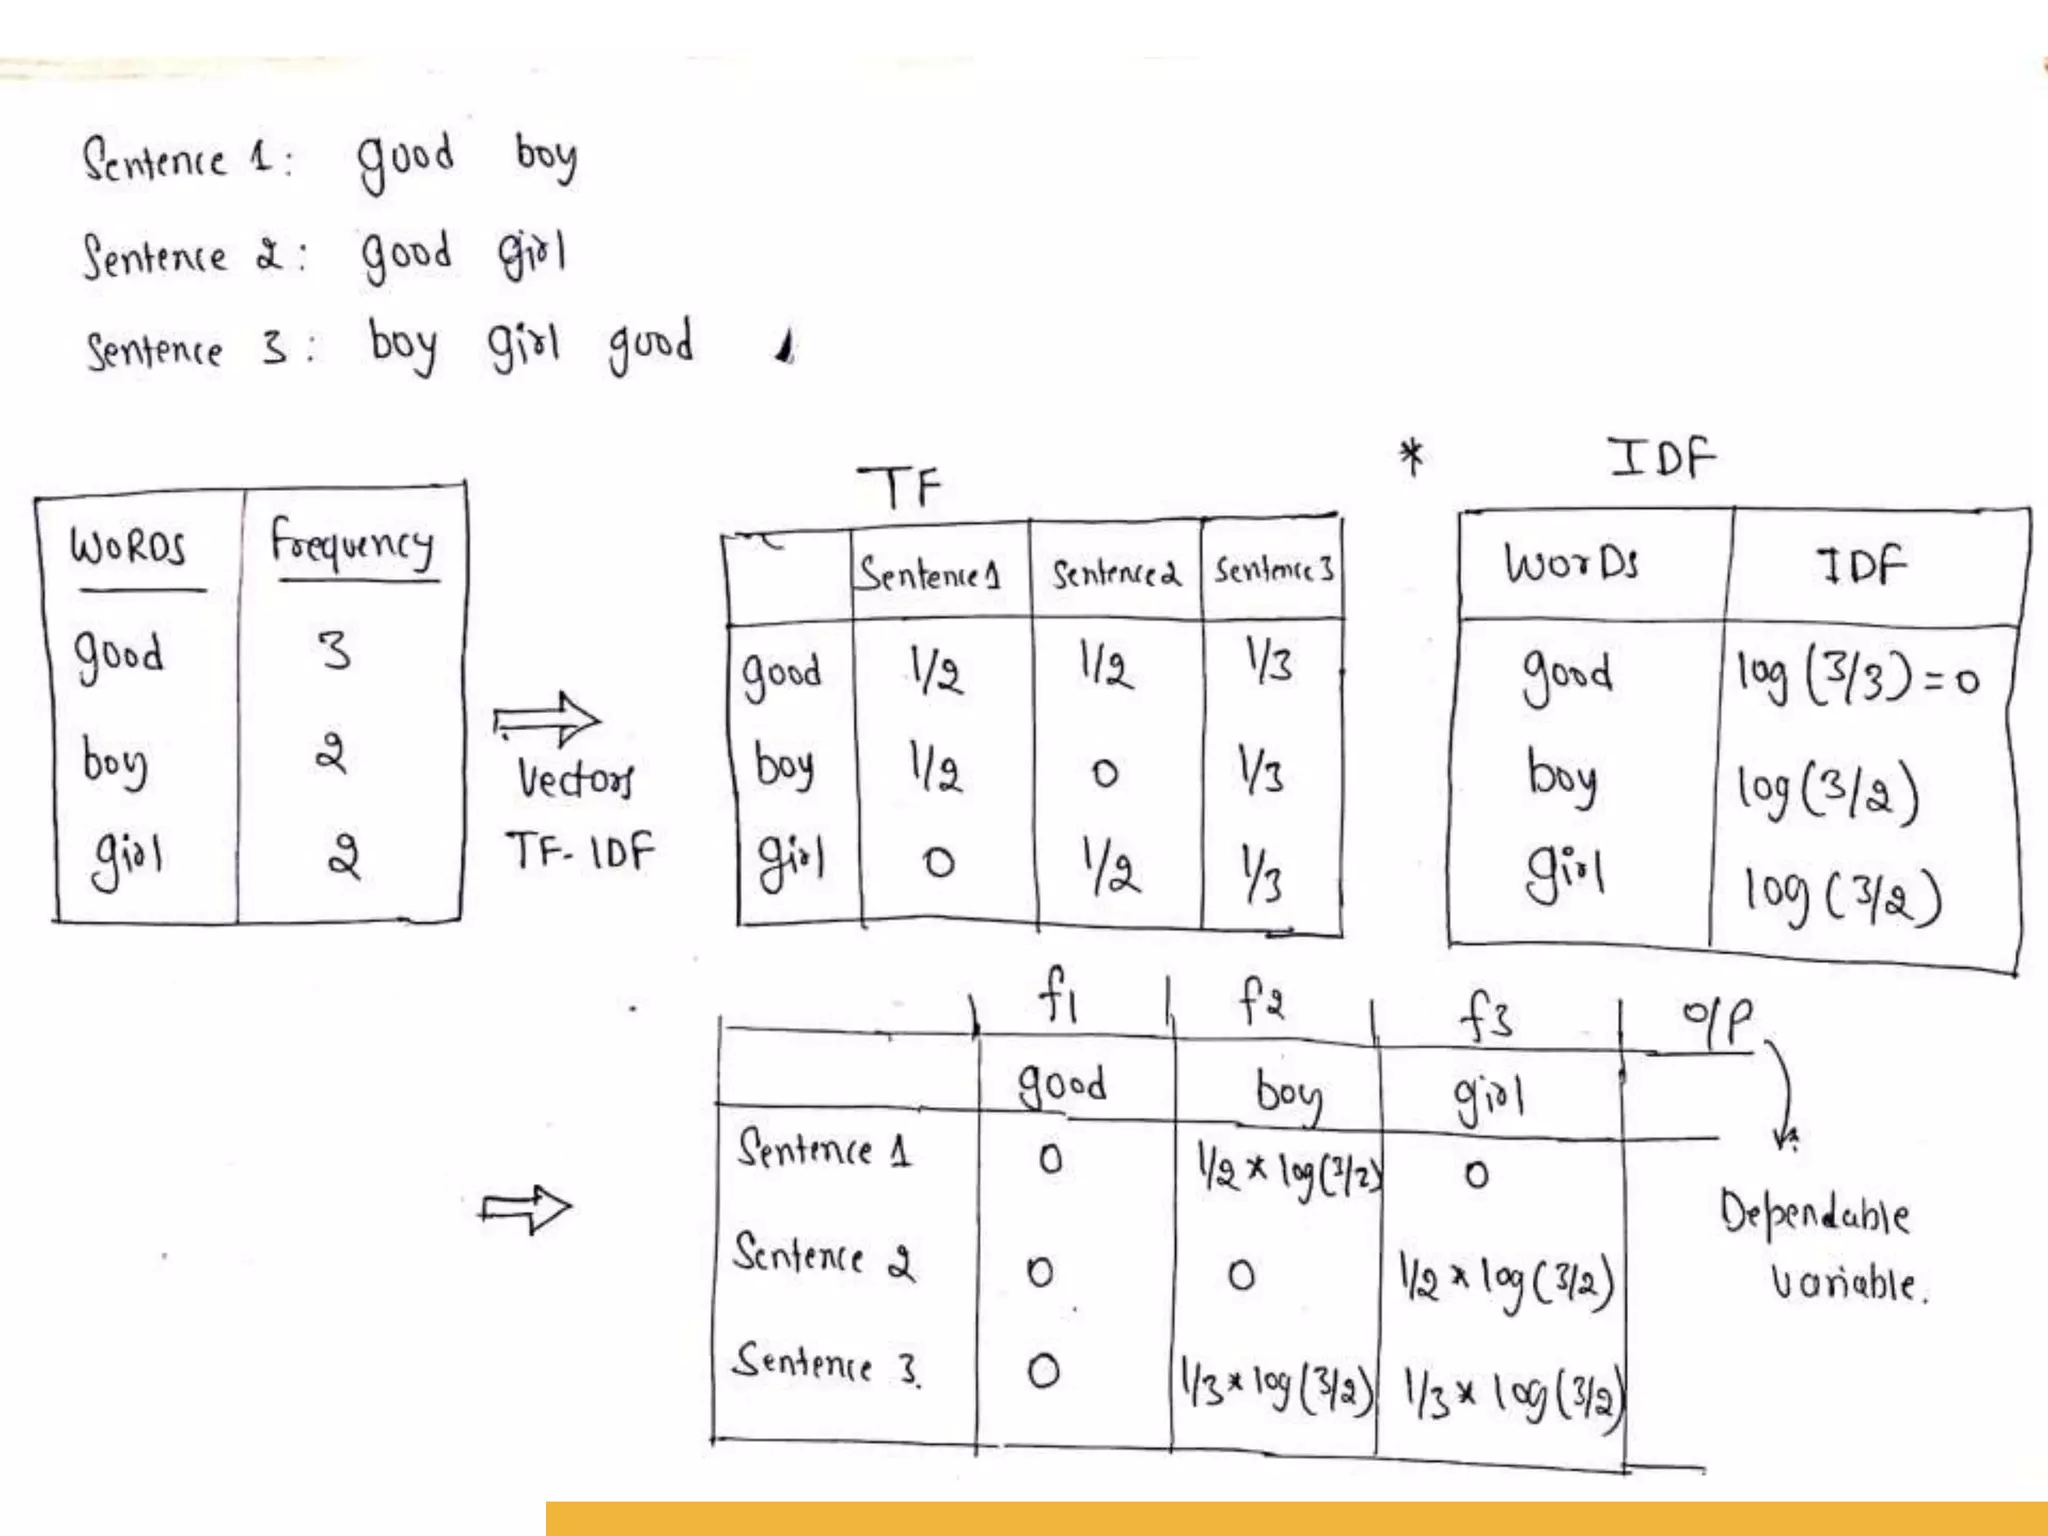 Sentence 1: good boy
Sentence 2: good girl
Sentence 3: boy girl good
WORDS Frequency
good 3
boy 2
girl 2
Vectors
TF-IDF
TF
Sentence1 Sentence2 Sentence3
good 1/2 1/2 1/3
boy 1/2 0 1/3
girl 0 1/2 1/3
*
IDF
WorDs IDF
good log (3/3) = 0
boy log (3/2)
girl log (3/2)
f1 f2 f3 O/P
good boy girl
Sentence 1 0 1/2 * log(3/2) 0
Sentence 2 0 0 1/2 * log(3/2)
Sentence 3. 0 1/3 * log (3/2) 1/3 * log (3/2)
Dependable
variable.